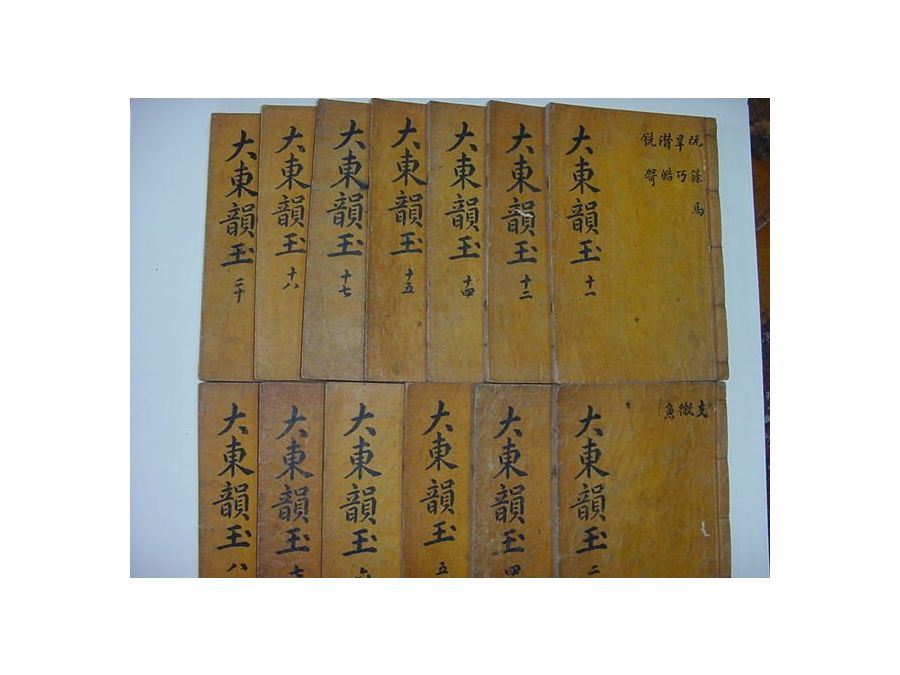 阮旱潸銑
篠巧皓哿
馬
大東韻玉 十一
大東韻玉 十二
大東韻玉 十四
大東韻玉 十五
大東韻玉 十七
大東韻玉 十八
大東韻玉 二十
支微魚
大東韻玉 二
大東韻玉 四
大東韻玉 五
大東韻玉 六
大東韻玉 七
大東韻玉 八